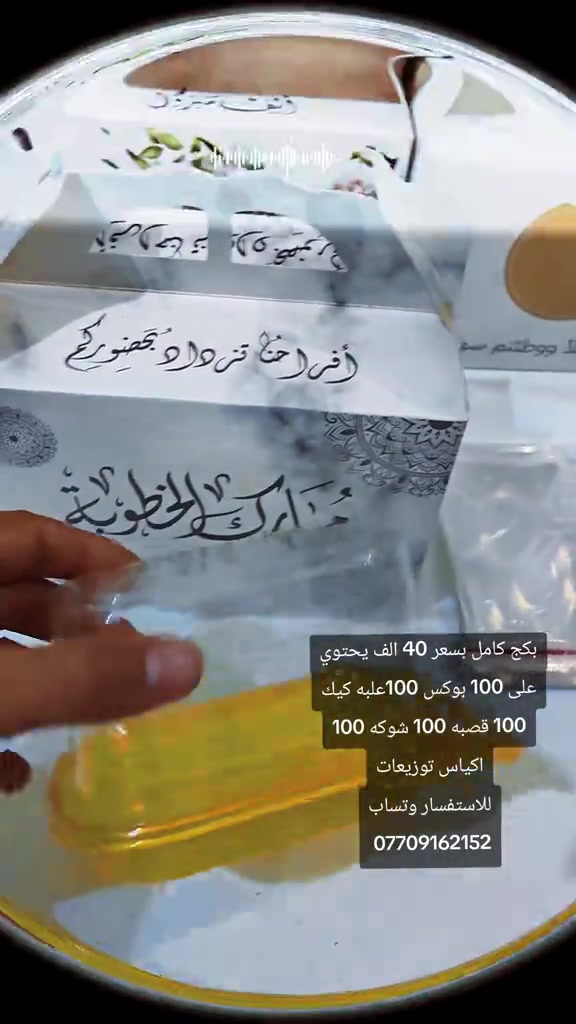 أفراحنا تزداد بحضوركم
مبارك الخطوبة
بكج كامل بسعر 40 الف يحتوي
على 100 بوكس 100علبه كيك
100 قصبه 100 شوكه 100
اكياس توزيعات
للاستفسار وتساب
07709162152